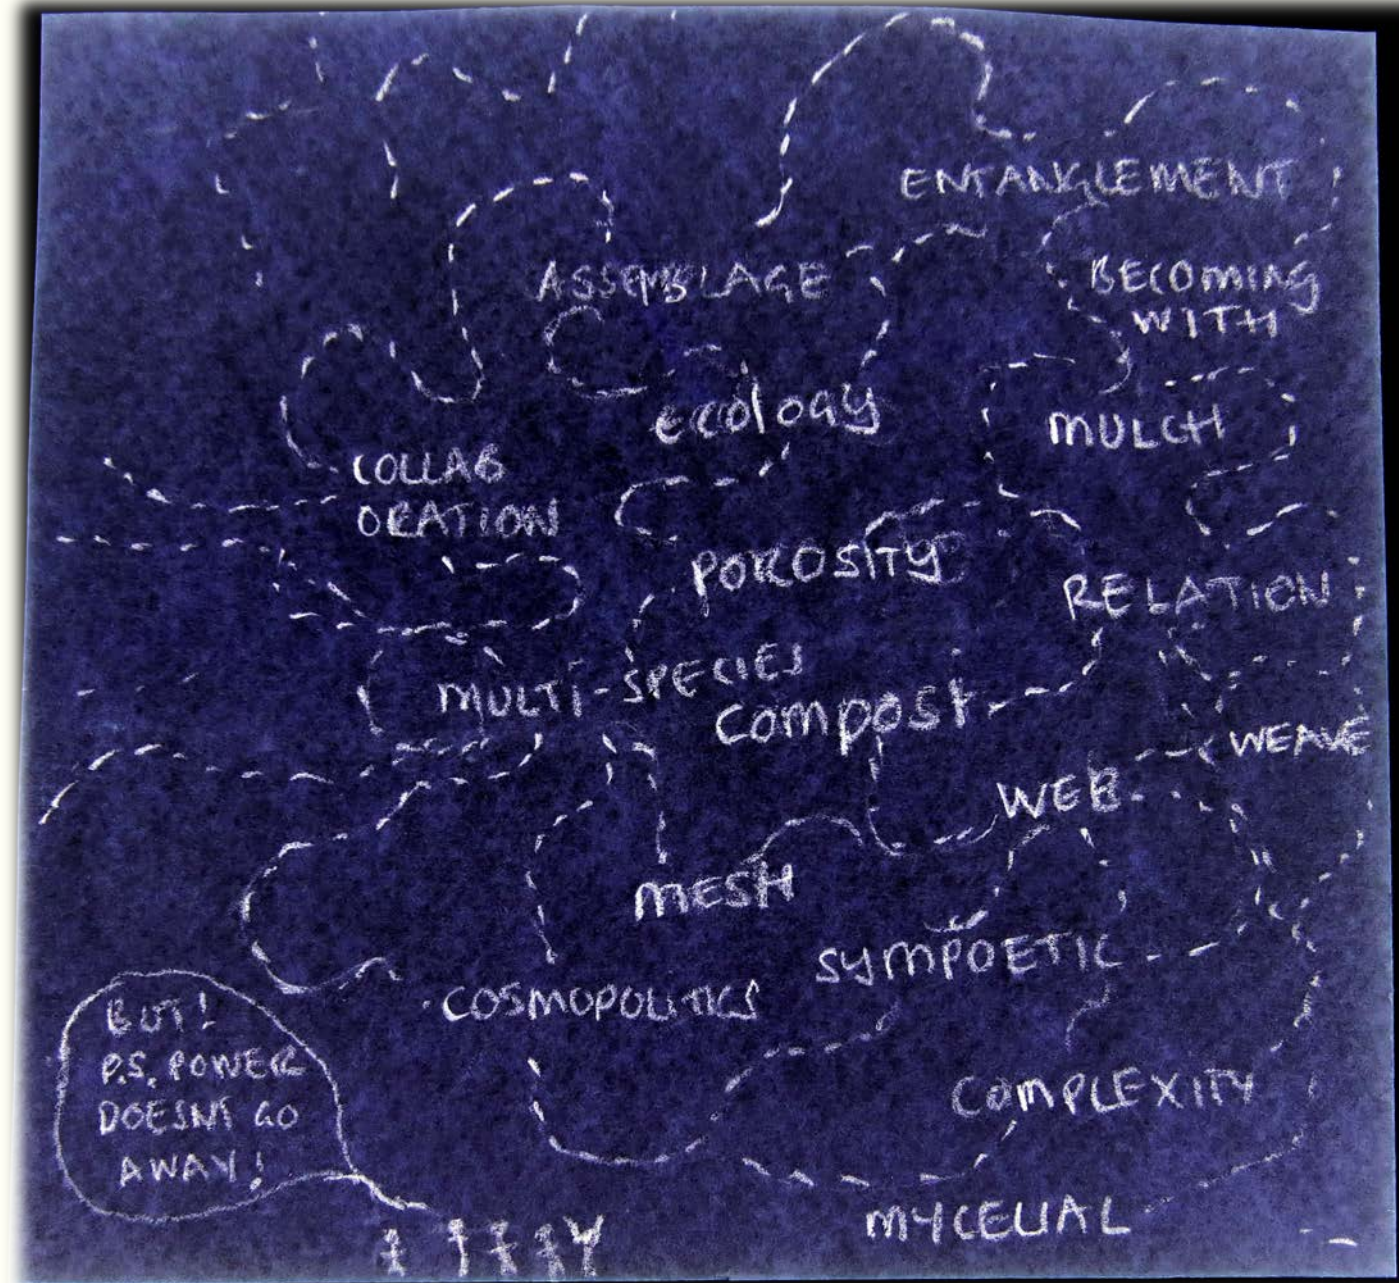 ENTANGLEMENT
ASSEMBLAGE
BECOMING
WITH
ecology
MULCH
COLLAB
ORATION
POROSITY
RELATION
MULTI-SPECIES
compost
WEAVE
WEB
MESH
SYMPOETIC
COSMOPOLITICS
BUT!
P.S. POWER
DOESNT GO
AWAY!
COMPLEXITY
MYCELIAL